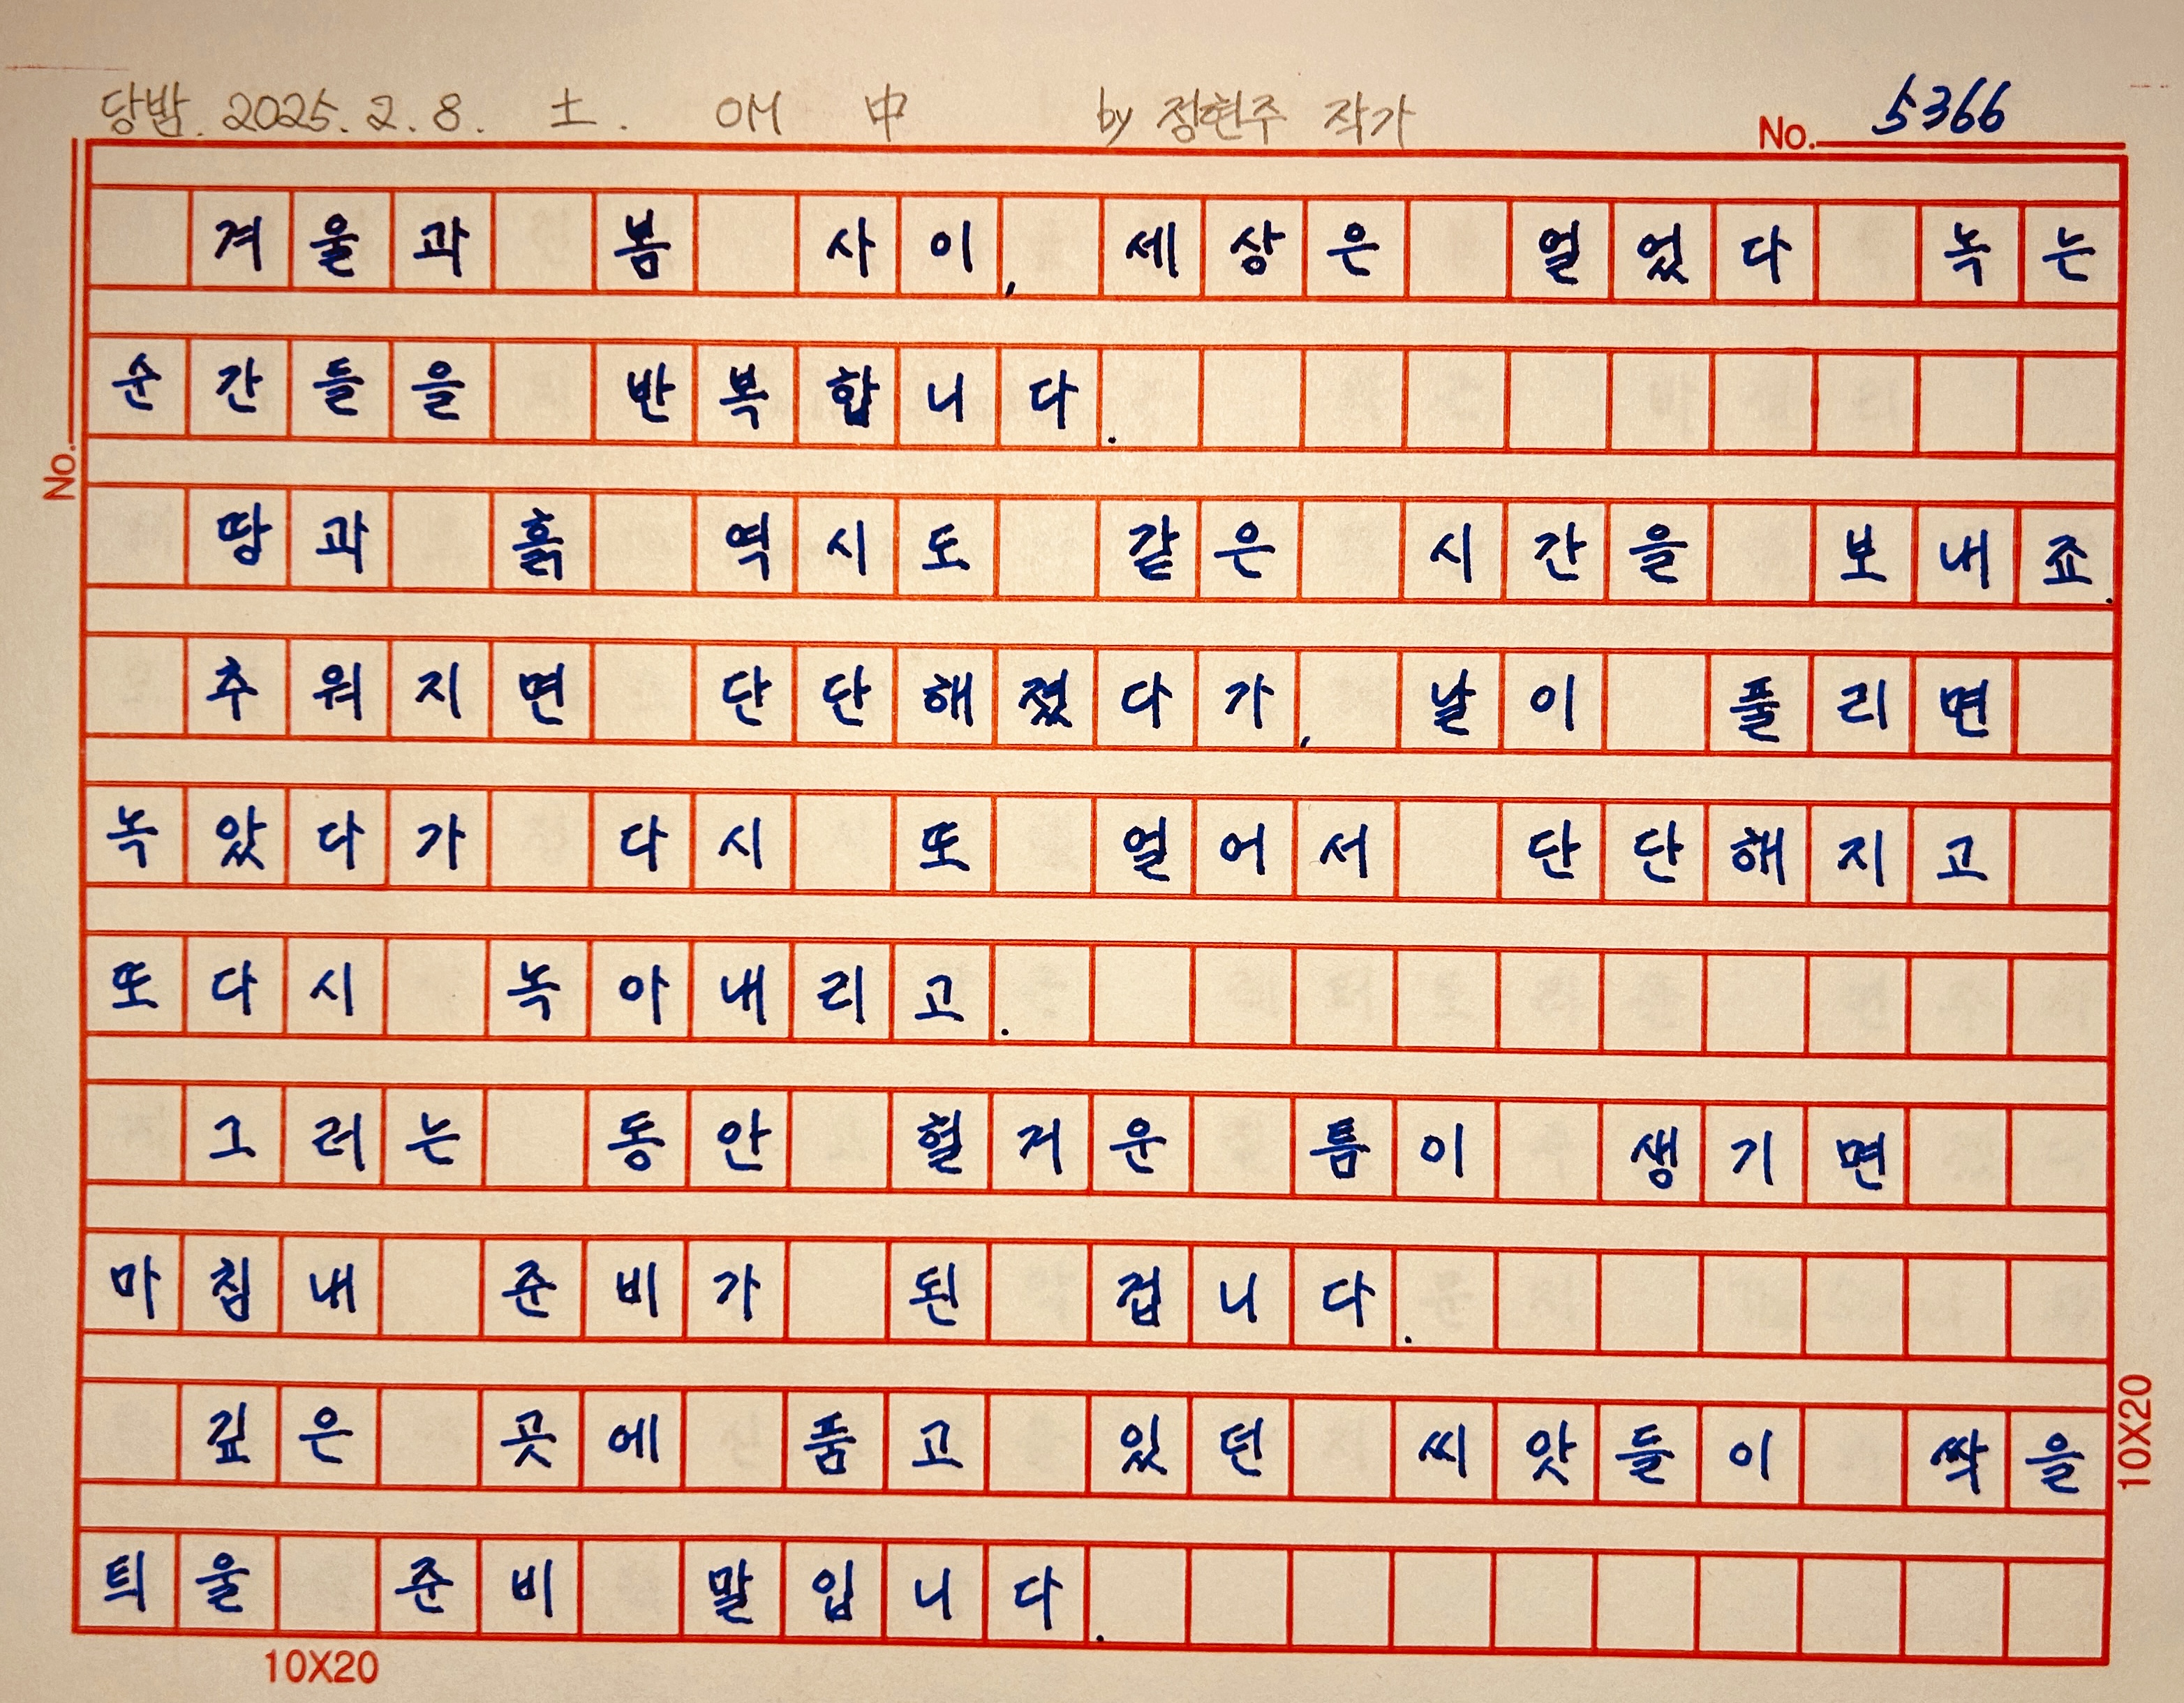 당밤. 2025. 2. 8. 土. OM 中 by 정현주 작가
No. 5366
겨울과 봄 사이, 세상은 얼었다 녹는
순간들을 반복합니다.
No.
땅과 흙 역시도 같은 시간을 보내죠.
추워지면 단단해졌다가, 날이 풀리면
녹았다가 다시 또 얼어서 단단해지고
또다시 녹아내리고.
그러는 동안 헐거운 틈이 생기면
마침내 준비가 된 겁니다.
깊은 곳에 품고 있던 씨앗들이 싹을
10X20
틔울 준비 말입니다.
10X20